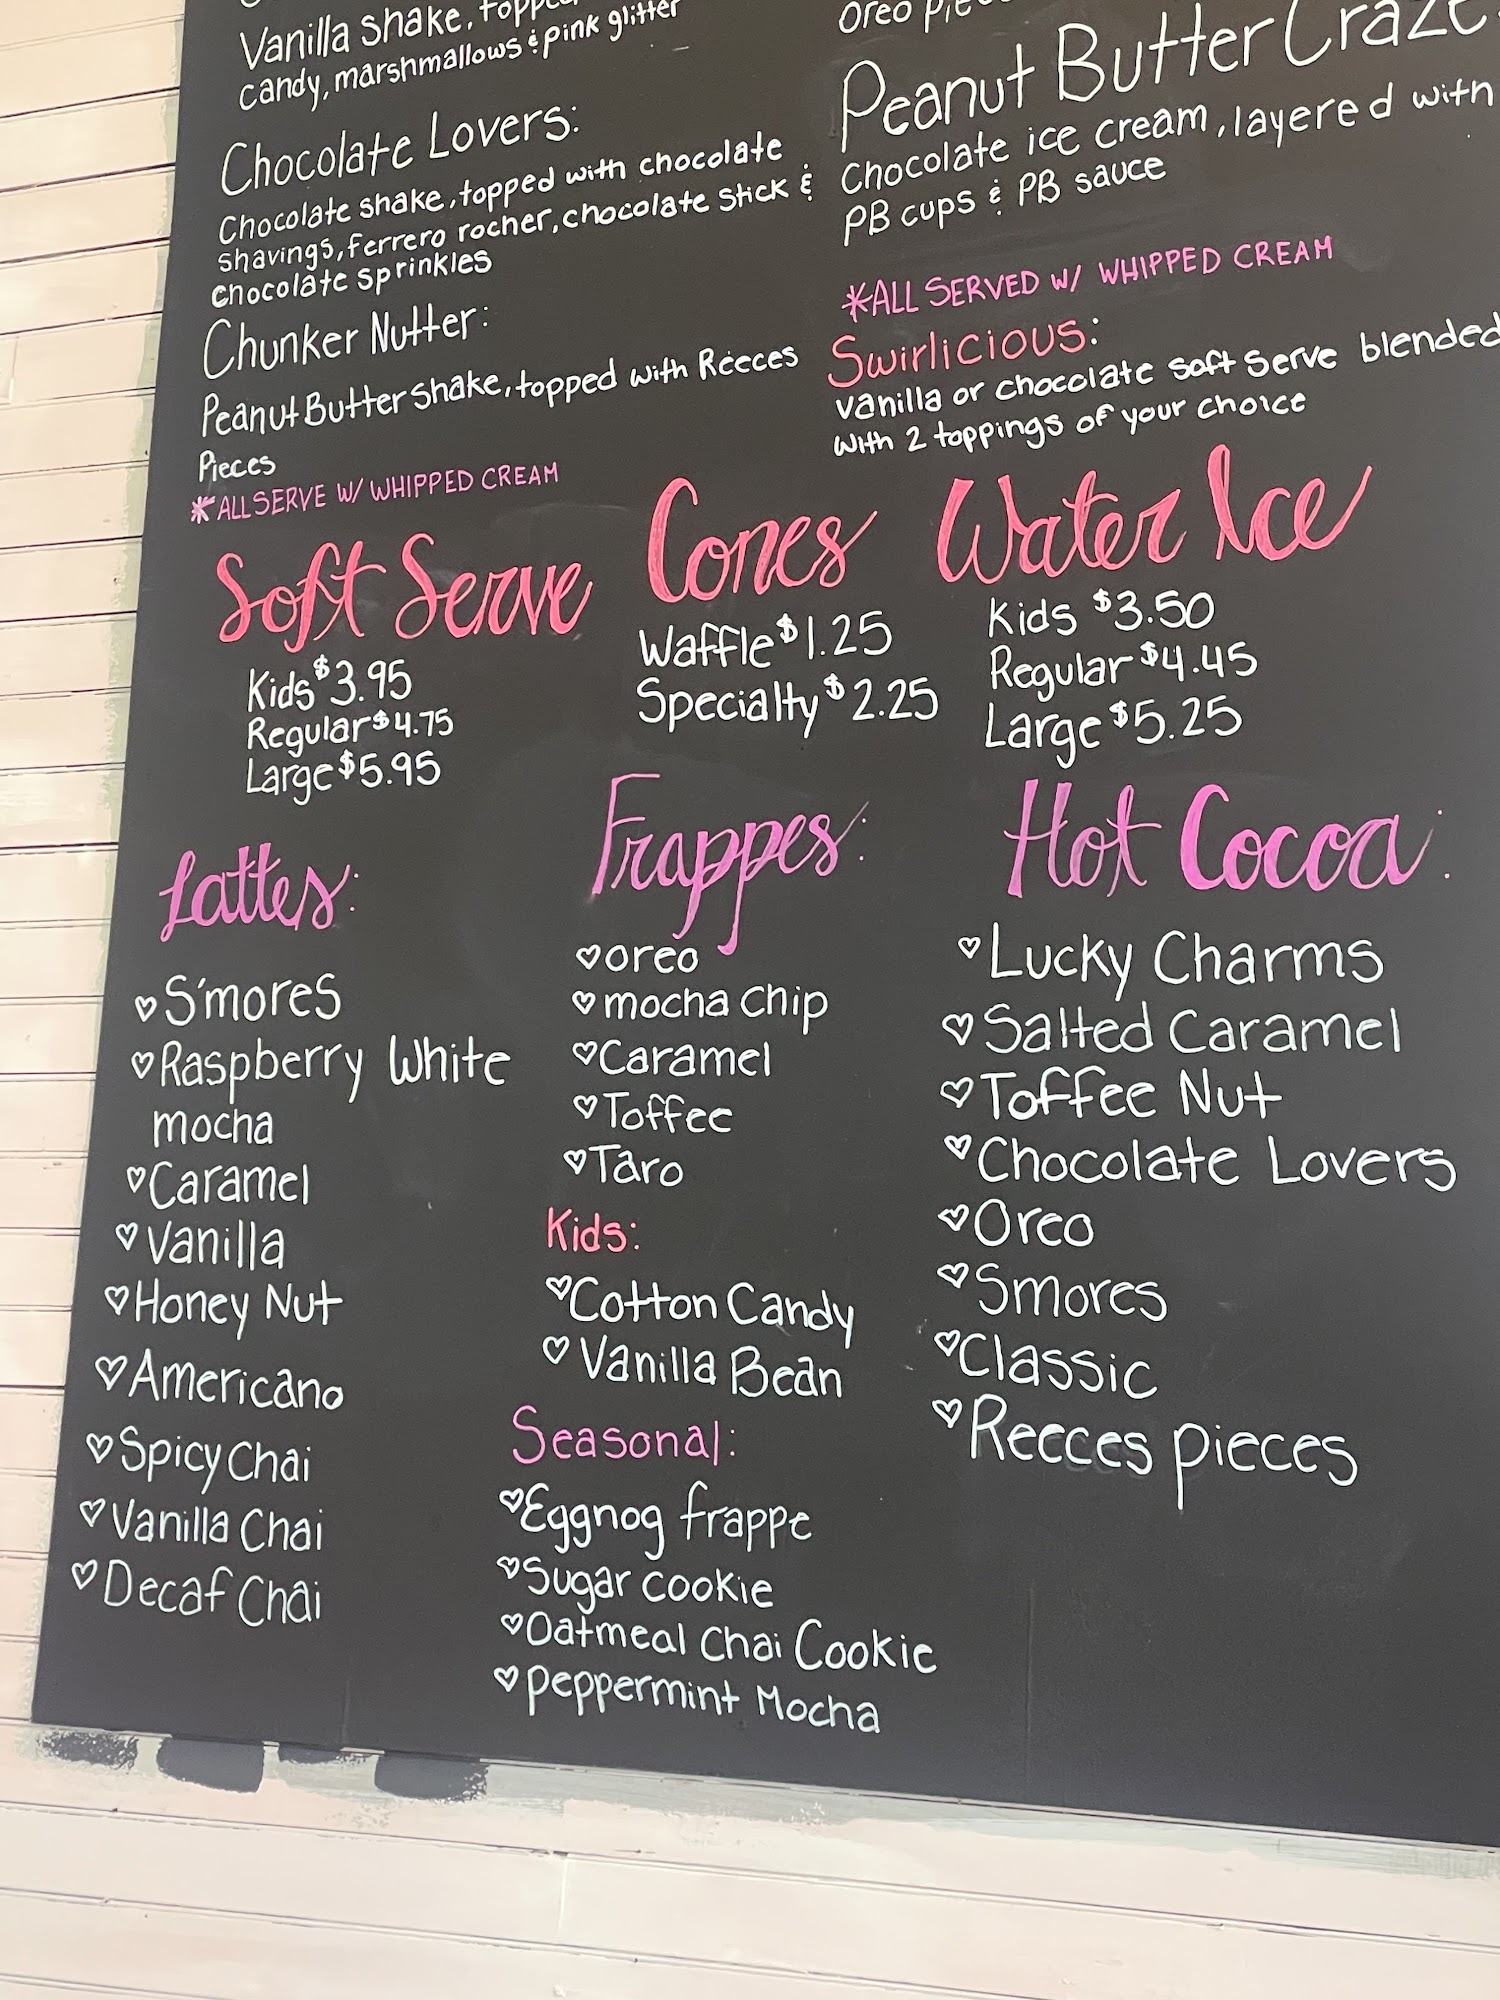 Vanilla shake, topped
candy, marshmallows & pink glitter
Chocolate Lovers:
Chocolate shake, topped with chocolate
shavings, ferrero rocher, chocolate stick &
chocolate sprinkles
Chunker Nutter:
Peanut Butter shake, topped with Reeces
Pieces
*ALL SERVE W/ WHIPPED CREAM
Oreo
Peanut Butter Craze
Chocolate ice cream, layered with
PB cups & PB sauce
*ALL SERVED W/ WHIPPED CREAM
Swirlicious:
vanilla or chocolate soft serve blended
with 2 toppings of your choice
Soft Serve
Kids $3.95
Regular $4.75
Large $5.95
Cones
Waffle $1.25
Specialty $2.25
Water Ice
Kids $3.50
Regular $4.45
Large $5.25
Lattes:
♡ S'mores
♡ Raspberry White
mocha
♡ Caramel
♡ Vanilla
♡ Honey Nut
♡ Americano
♡ Spicy Chai
♡ Vanilla Chai
♡ Decaf Chai
Frappes:
♡ oreo
♡ mocha chip
♡ Caramel
♡ Toffee
♡ Taro
Kids:
♡ Cotton Candy
♡ Vanilla Bean
Seasonal:
♡ Eggnog frappe
♡ Sugar cookie
♡ Oatmeal Chai Cookie
♡ peppermint Mocha
Hot Cocoa:
♡ Lucky Charms
♡ Salted Caramel
♡ Toffee Nut
♡ Chocolate Lovers
♡ Oreo
♡ Smores
♡ Classic
♡ Reeces pieces